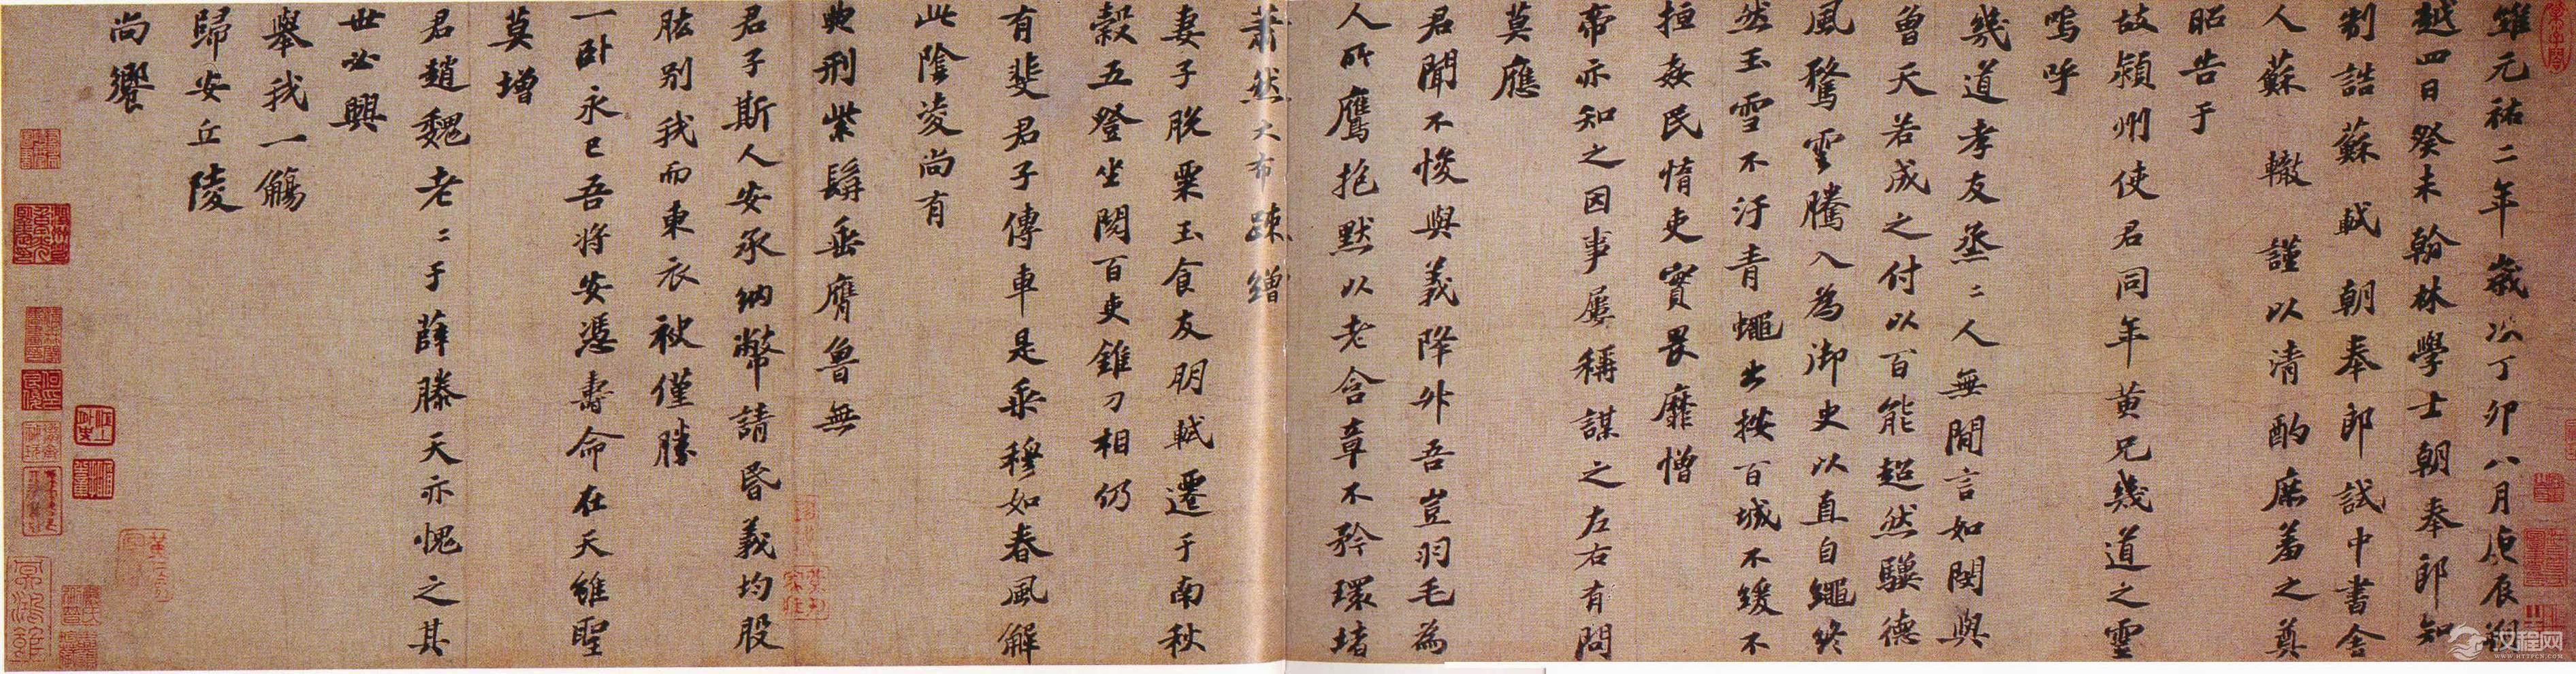 維元祐二年歲次丁卯八月庚辰朔
越四日癸未翰林學士朝奉郎知
制誥蘇軾朝奉郎試中書舍
人蘇轍謹以清酌庶羞之奠
昭告于
故潁州使君同年黃兄幾道之靈
嗚呼
幾道孝友烝〻人無閒言如閔與
曾天若成之付以百能超然驥德
風騖雲騰入為御史以直自繩終
然玉雪不汙青蠅出按百城不緩不
搄姦民惰吏實畏靡憎
帝亦知之因事屢稱謀之左右有問
莫應
君聞不悛與義降升吾豈羽毛為
人所鷹抱默以老含章不矜環堵
蕭然大布疎繒
妻子脫粟玉食友朋軾遷于南秋
穀五登坐閱百吏錐刀相仍
有斐君子傳車是乘穆如春風解
此陰凌尚有
典刑紫髯垂膺魯無
君子斯人安承納幣請昏義均股
肱別我而東衣袂僅勝
一卧永已吾將安憑壽命在天雖聖
莫增
君趙魏老〻于薛滕天亦愧之其
世必興
舉我一觴
歸安丘陵
尚饗
汉程网
WWW.HTTPCN.COM